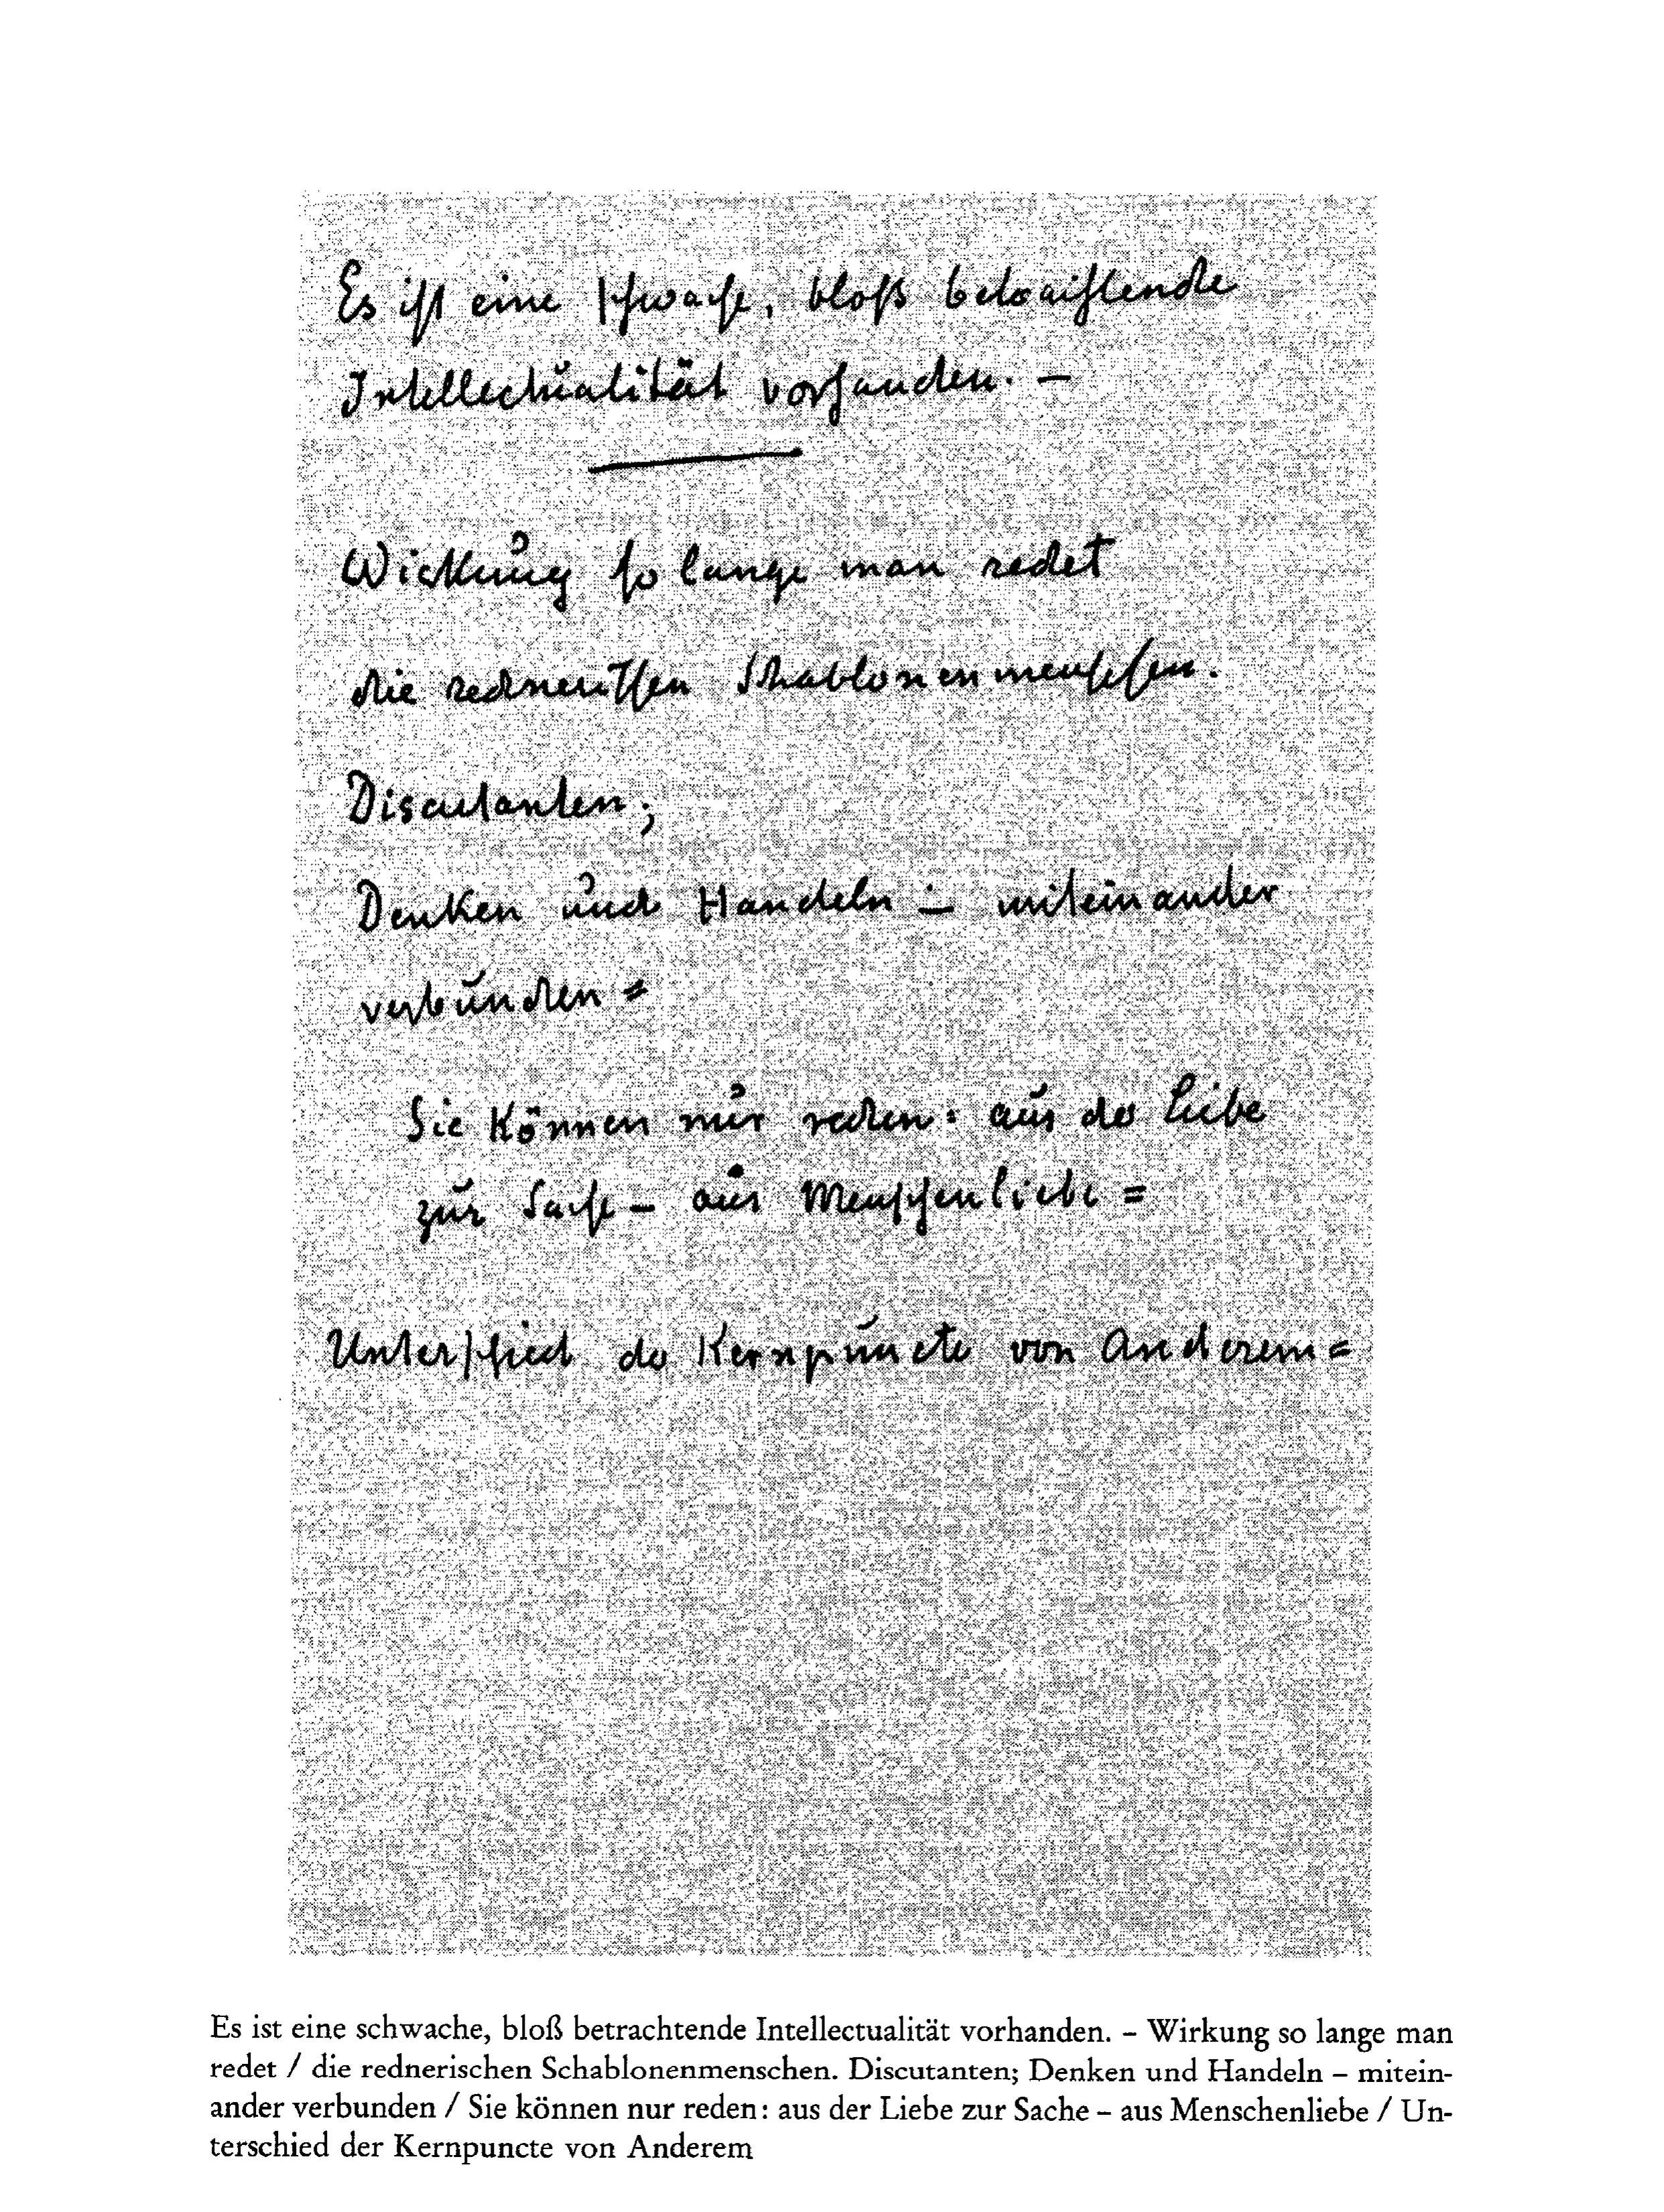 Es ist eine schwache, bloß betrachtende
Intellectualität vorhanden. –
Wirkung so lange man redet
die rednerischen Schablonenmenschen.
Discutanten;
Denken und Handeln – miteinander
verbunden =
Sie können nur reden: aus der Liebe
zur Sache – aus Menschenliebe =
Unterschied der Kernpuncte von Anderem =
Es ist eine schwache, bloß betrachtende Intellectualität vorhanden. – Wirkung so lange man
redet / die rednerischen Schablonenmenschen. Discutanten; Denken und Handeln – mitein-
ander verbunden / Sie können nur reden: aus der Liebe zur Sache – aus Menschenliebe / Un-
terschied der Kernpuncte von Anderem